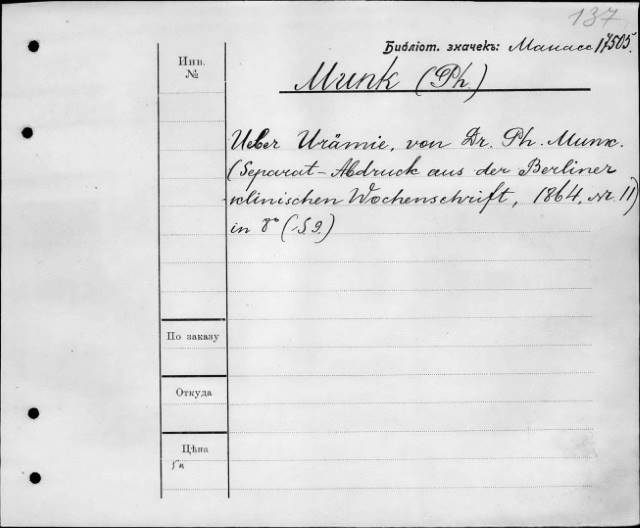 137
Библіот. значекъ: Манасс 17505.
Инв.
№
Munk (Ph.)
Ueber Urämie, von Dr. Ph. Munk.
(Separat-Abdruck aus der Berliner
klinischen Wochenschrift, 1864, Nr 11)
in 8° (-S 9.)
По заказу
Откуда
Цѣна